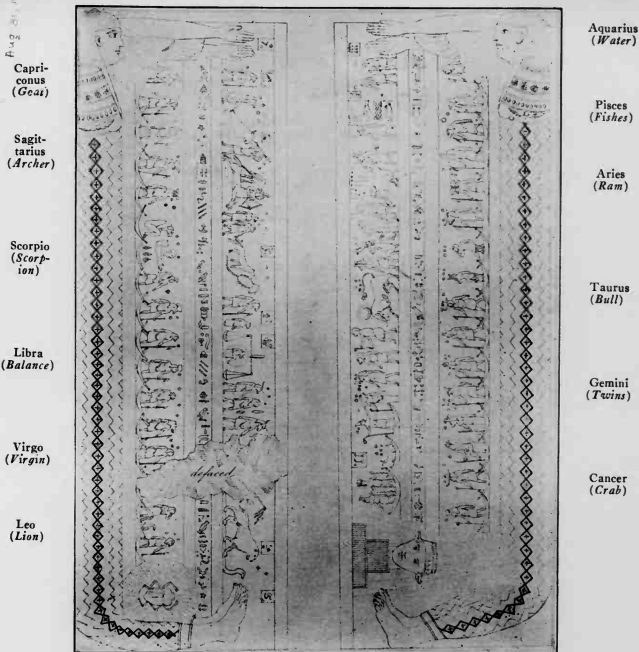 Aug
Capri-
conus
(Goat)
Sagit-
tarius
(Archer)
Scorpio
(Scorp-
ion)
Libra
(Balance)
Virgo
(Virgin)
Leo
(Lion)
defaced
Aquarius
(Water)
Pisces
(Fishes)
Aries
(Ram)
Taurus
(Bull)
Gemini
(Twins)
Cancer
(Crab)